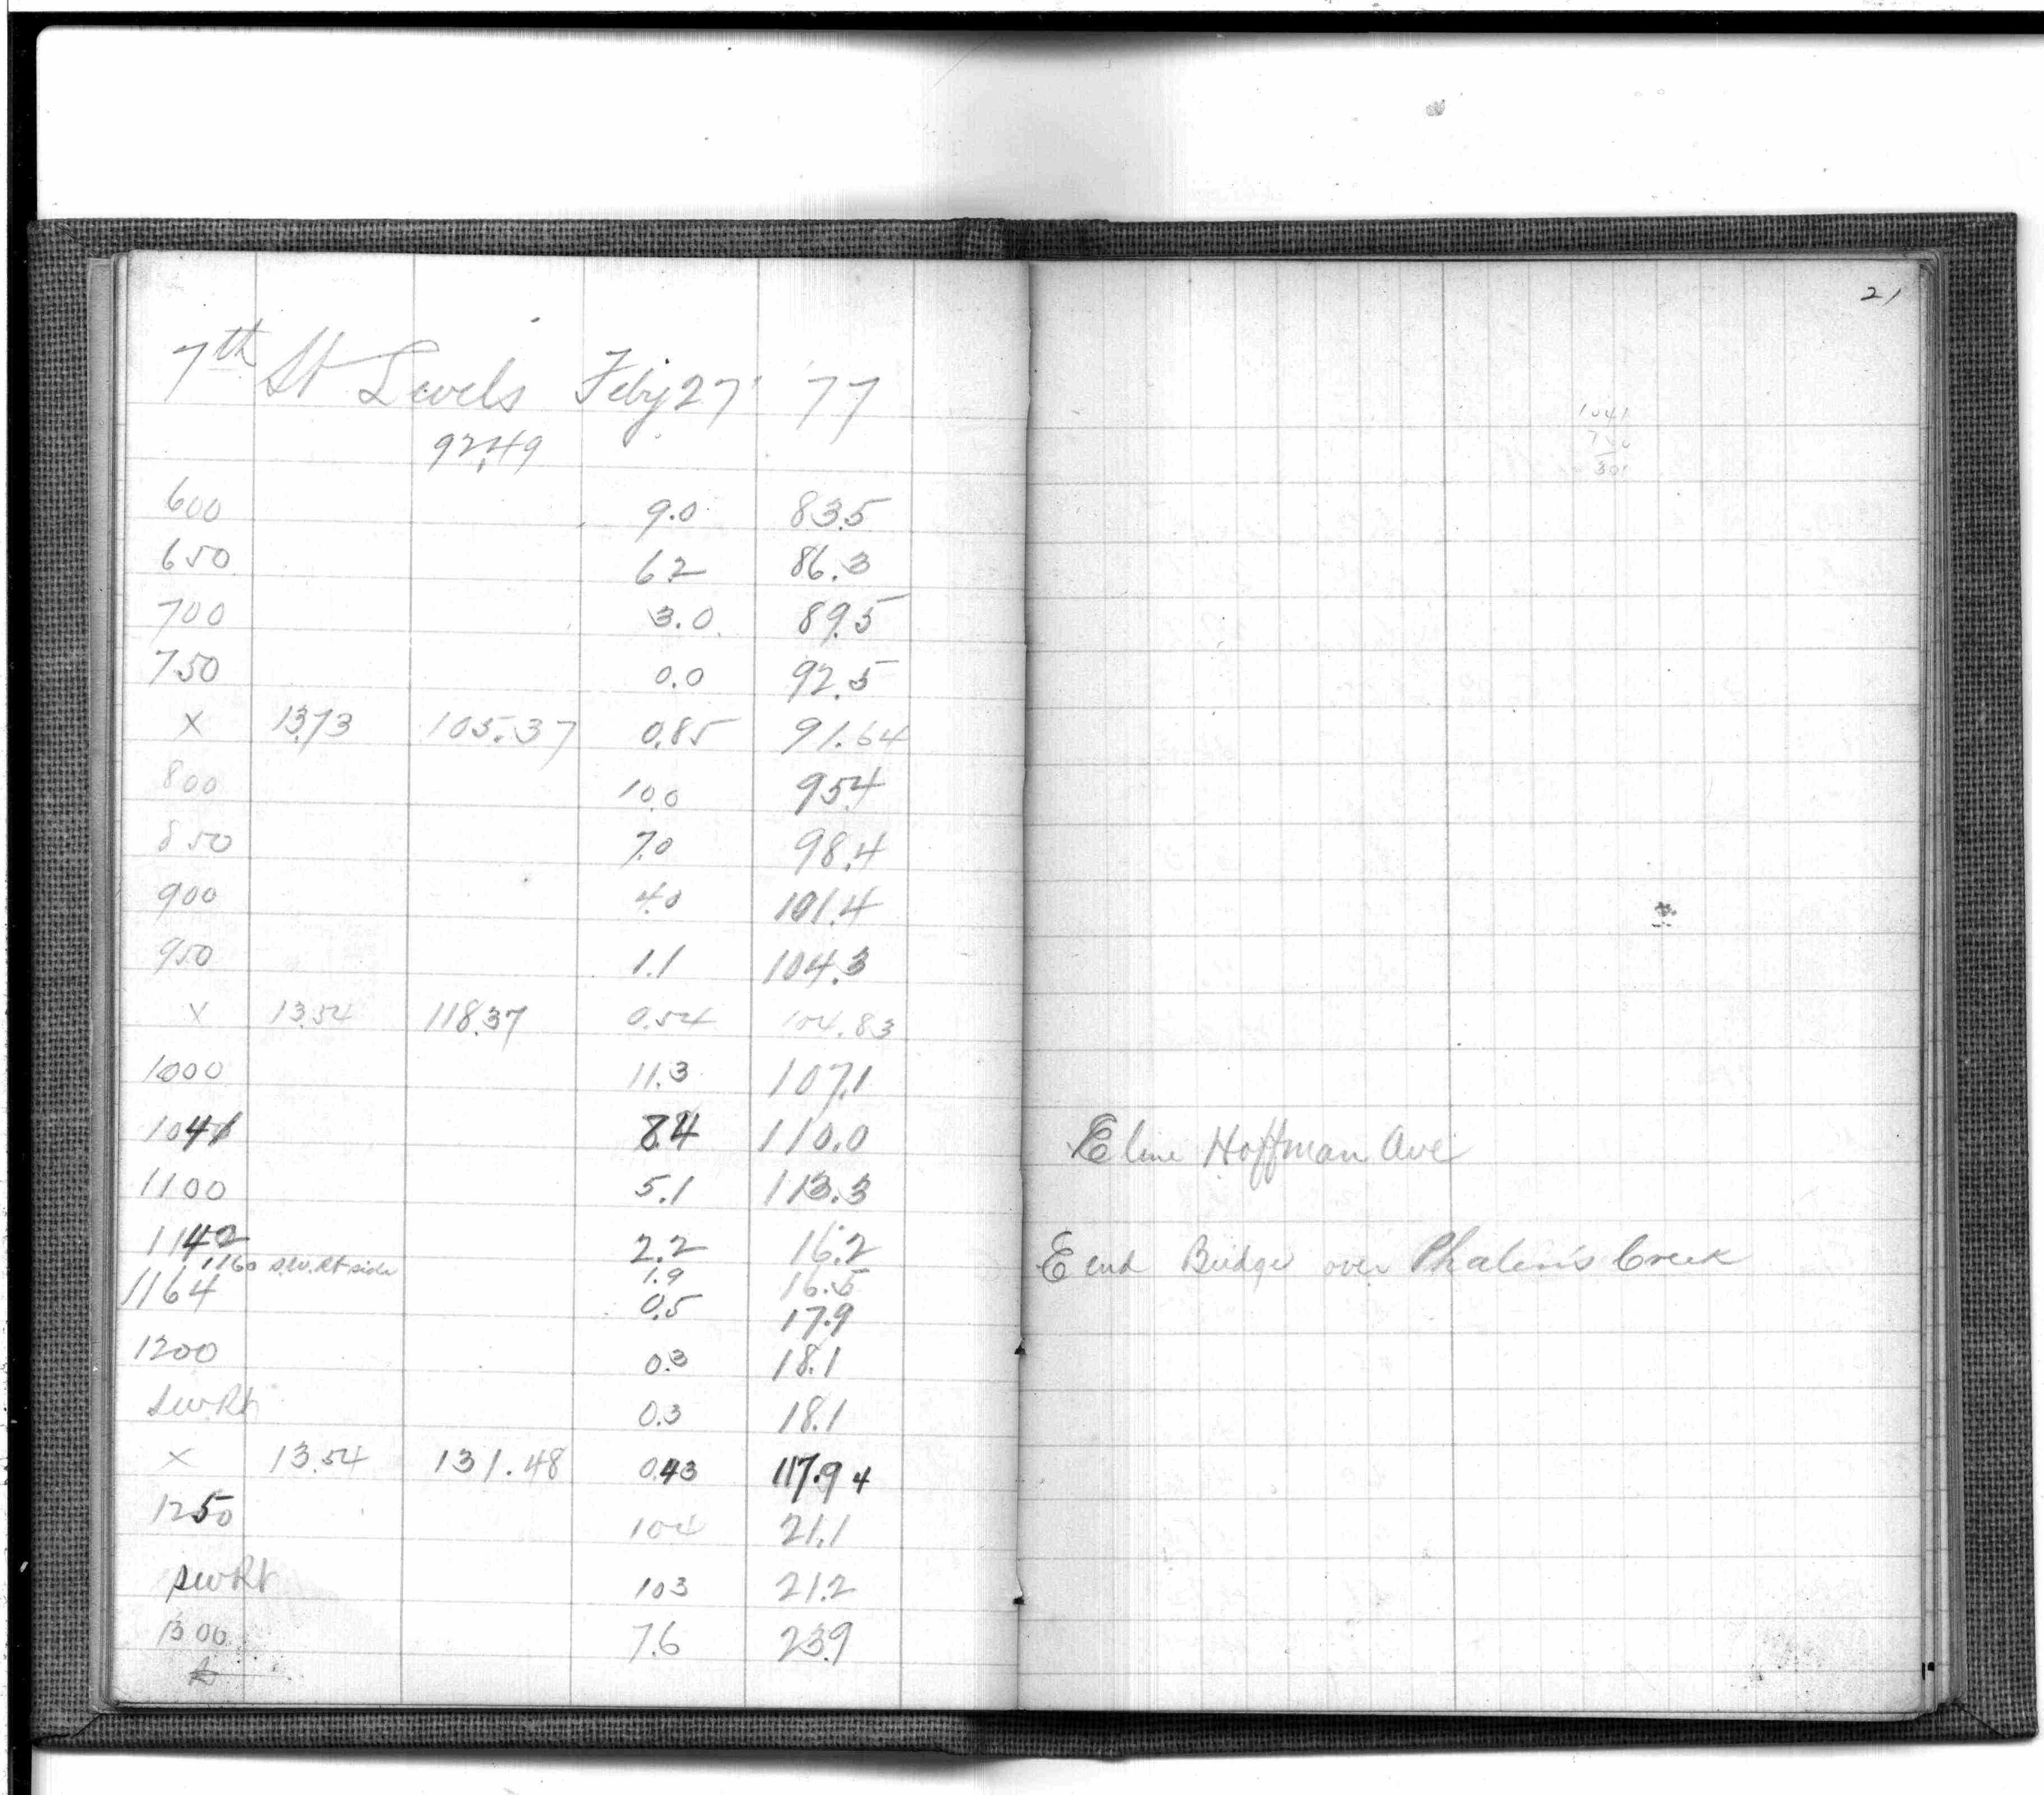 7th St Levels Feby 27 '77
92.49
600 9.0 83.5
650 6.2 86.3
700 3.0 89.5
750 0.0 92.5
x 13.73 105.37 0.85 91.64
800 10.0 95.4
850 7.0 98.4
900 4.0 101.4
950 1.1 104.3
x 13.54 118.37 0.54 104.83
1000 11.3 107.1
1041 8.4 110.0
1100 5.1 113.3
1142 2.2 16.2
1160 s.w. Rt side 1.9 16.5
1164 0.5 17.9
1200 0.3 18.1
sw Rt 0.3 18.1
x 13.54 131.48 0.43 117.94
1250 10.4 21.1
sw Rt 10.3 21.2
1300 7.6 23.9
21
1041
301
E line Hoffman Ave
E end Bridge over Phalen's Creek